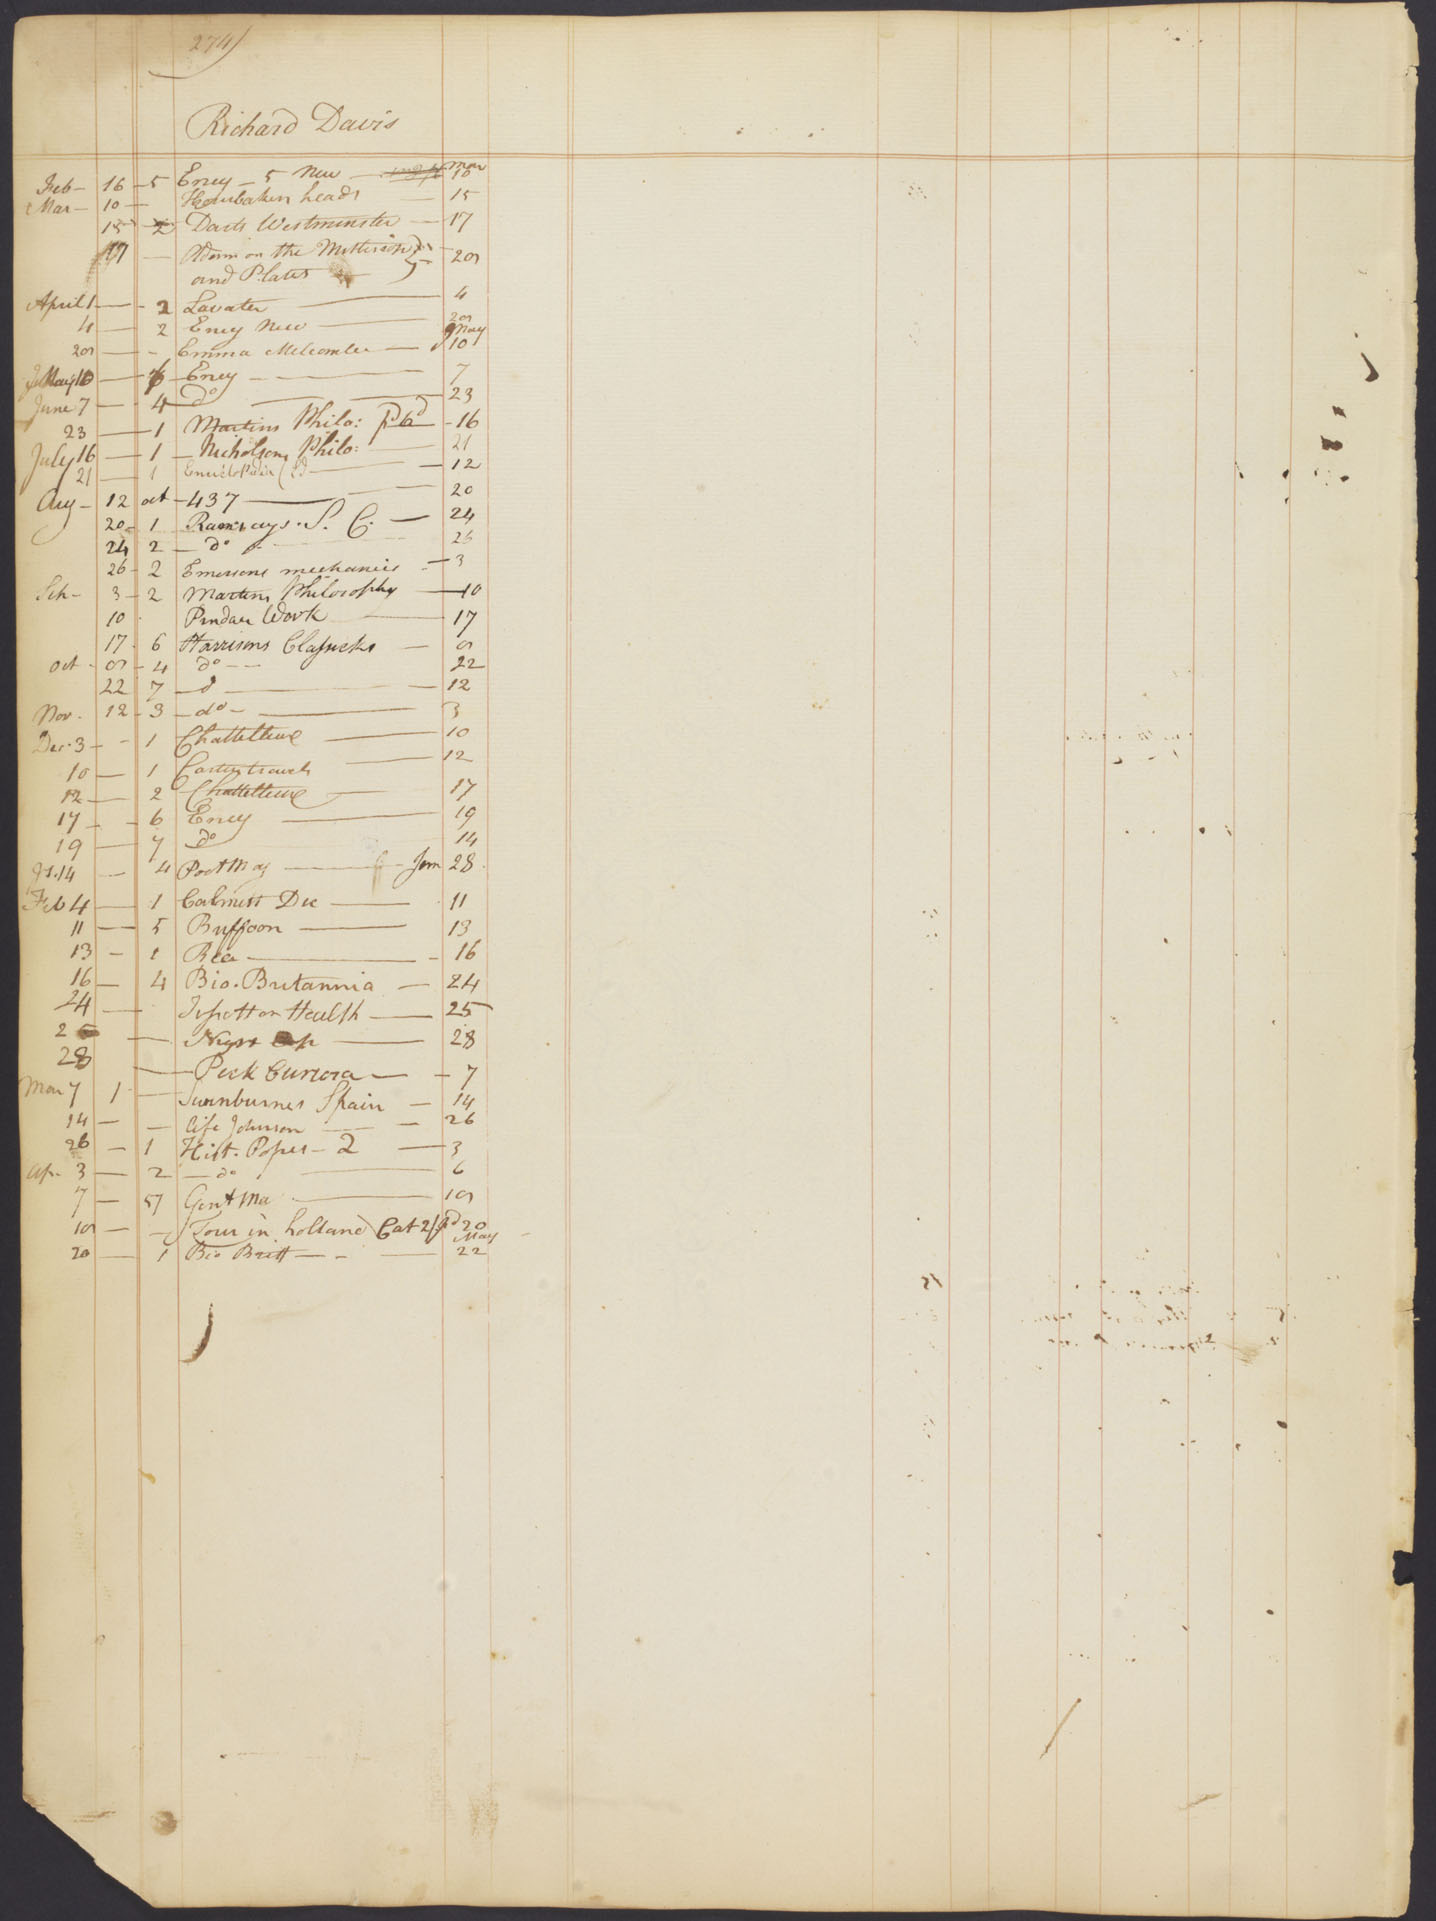 274)
Richard Davis
Feb - 16 - 5 Ency - 5 New - Mar 10
Mar - 10 - Houbaken heads - 15
15 - 2 Darts Westminster - 17
17 - Adam on the
and Plates - 20
April 1 - 2 Lavater - 4
4 - 2 Ency New - 20
20 - - Emma Melcomber - May 10
May 10 - 6 Ency - 7
June 7 - 4 do - 23
23 - 1 Martins Philo: pd 6d - 16
July 16 - 1 - Nicholsons Philo: - 21
21 - 1 Encyclopedia - 12
Aug - 12 oct - 437 - 20
20 - 1 Ramsays. S. C. - 24
24 2 - do - 26
26 - 2 Emersons mechanics - 3
3 - 2 Martins Philosophy - 10
10 Pindar Work - 17
17 6 Harrisons Classicks - 9
Oct - 9 - 4 do - - 22
22 7 - d - 12
Nov. 12 - 3 - do - 3
Dec. 3 - - 1 - 10
10 - 1 - 12
12 - 2 - 17
17 - - 6 Ency - 19
19 - 7 do 14
14 - 4 Poet Mag - Jan 28
Feb 4 - 1 Calmett Dic - 11
11 - 5 Buffoon - 13
13 - 1 Rea - - 16
16 - 4 Bio. Britannia - 24
24 - Tissott on Health - 25
25 - - 28
28 - Peck Curiosa - - 7
Mar 7 1 - Swinburnes Spain - 14
14 - - life Johnson - - 26
26 - 1 Hist. Popes - 2 - 3
Ap. 3 - 2 - do - 6
7 - 57 Gent Ma - 10
10 - - Tour in holland Cat 2/ pd 20
May
20 - 1 Bio Britt - - - 22